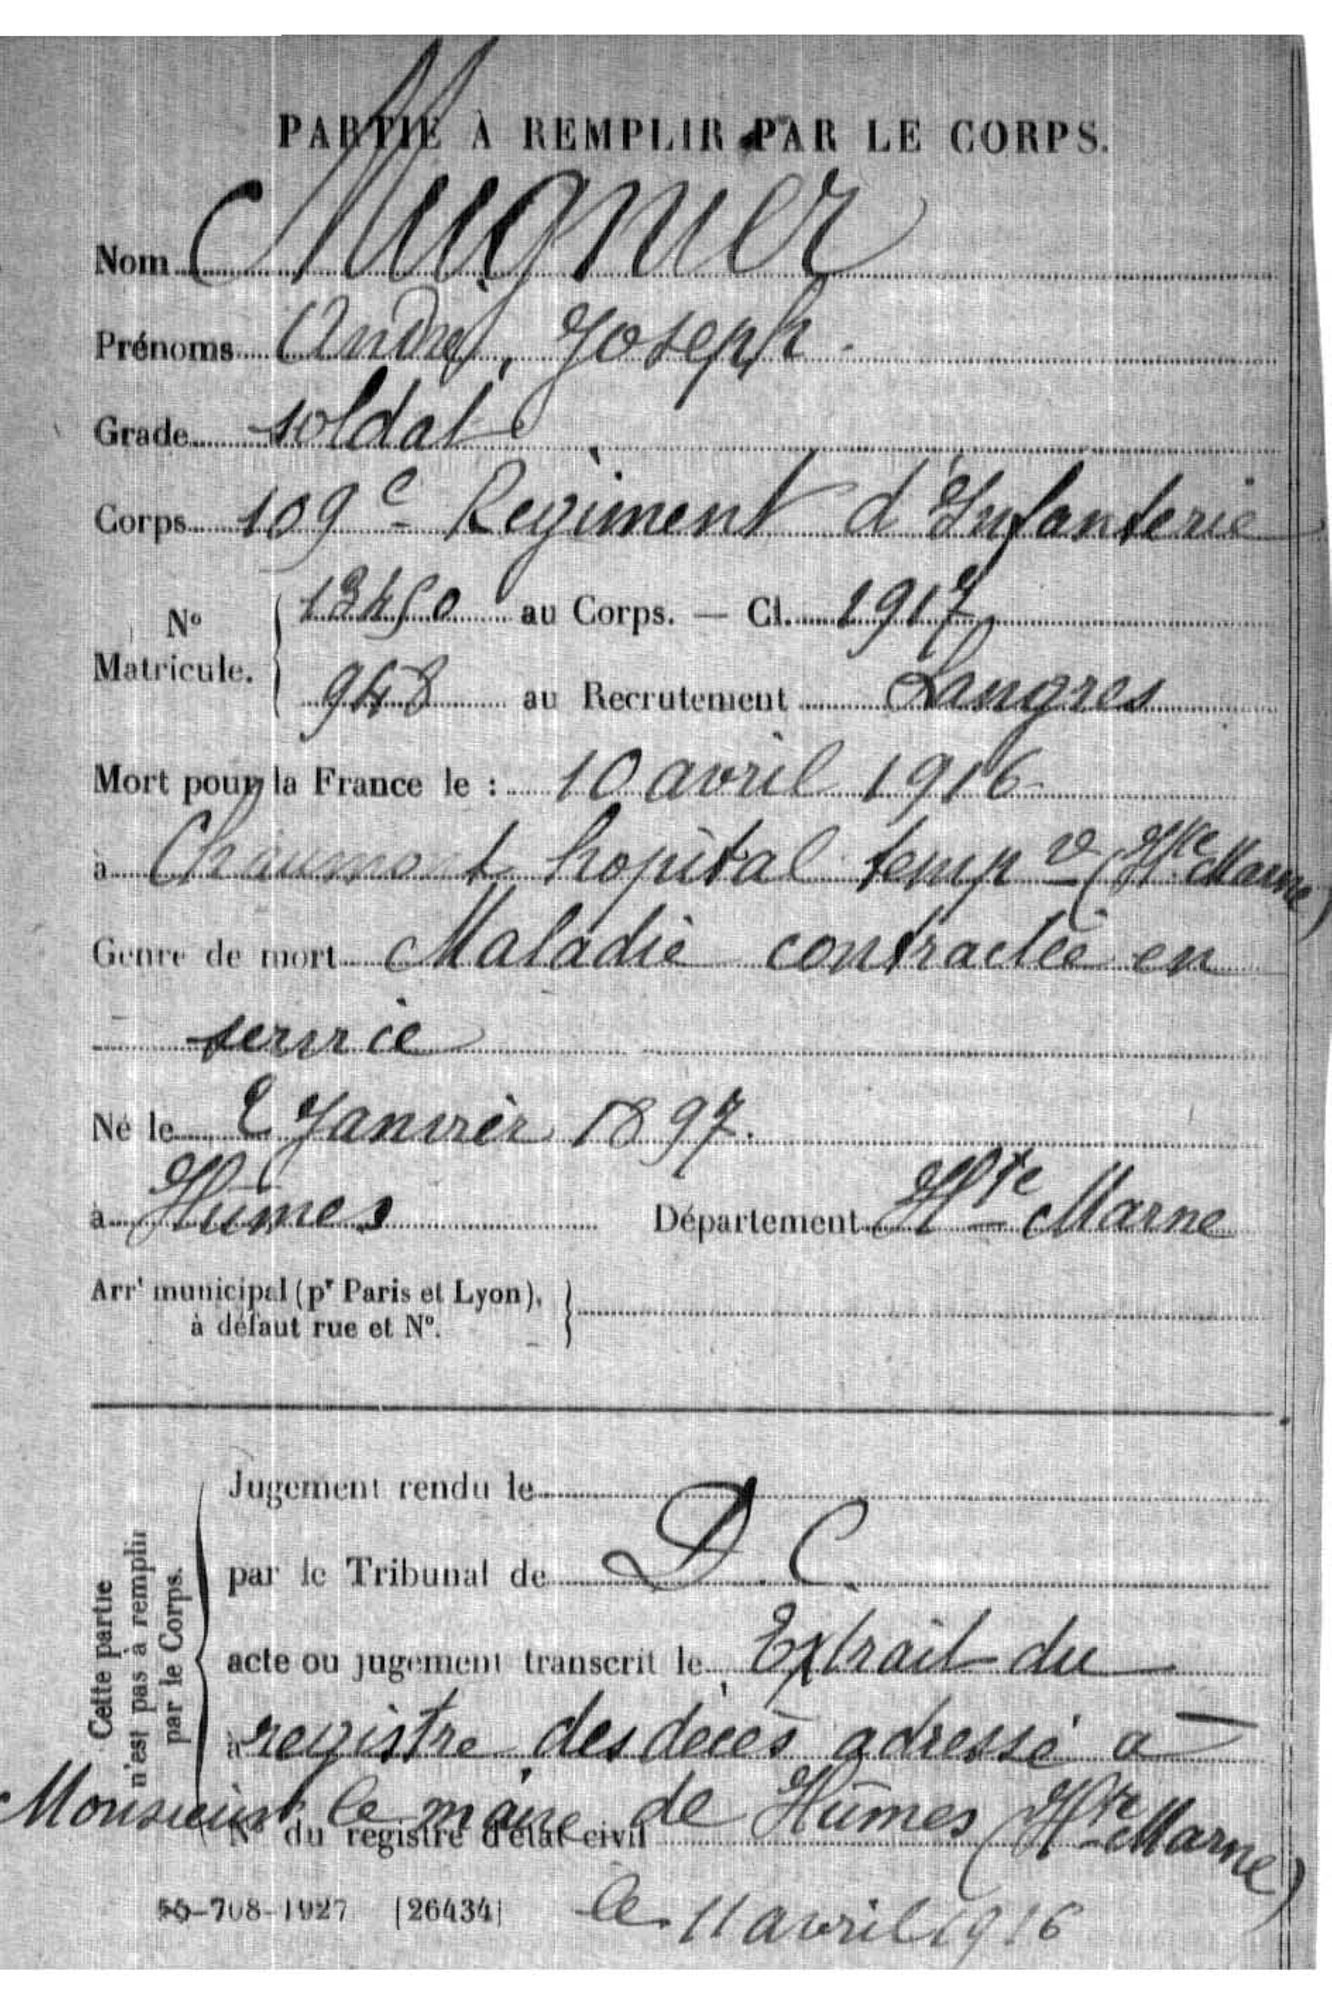 PARTIE À REMPLIR PAR LE CORPS.
Nom Mugnier
Prénoms André, Joseph.
Grade soldat
Corps 109e Regiment d'Infanterie
No Matricule. { 13450 au Corps. — Cl. 1917
948 au Recrutement Langres
Mort pour la France le : 10 avril 1916
à Chaumont hopital temp re (Hte Marne)
Genre de mort Maladie contractée en
service
Né le 2 Janvier 1897.
à Hûmes Département Hte Marne
Arrt municipal (pr Paris et Lyon),
à défaut rue et No. }
Cette partie
n'est pas à remplir
par le Corps.
Jugement rendu le
par le Tribunal de D. C.
acte ou jugement transcrit le Extrait du
à registre des décès adressé à
Monsieur le maire de Hûmes (Hte Marne)
No du registre d'état civil
708-1927 [26434] le 11 avril 1916